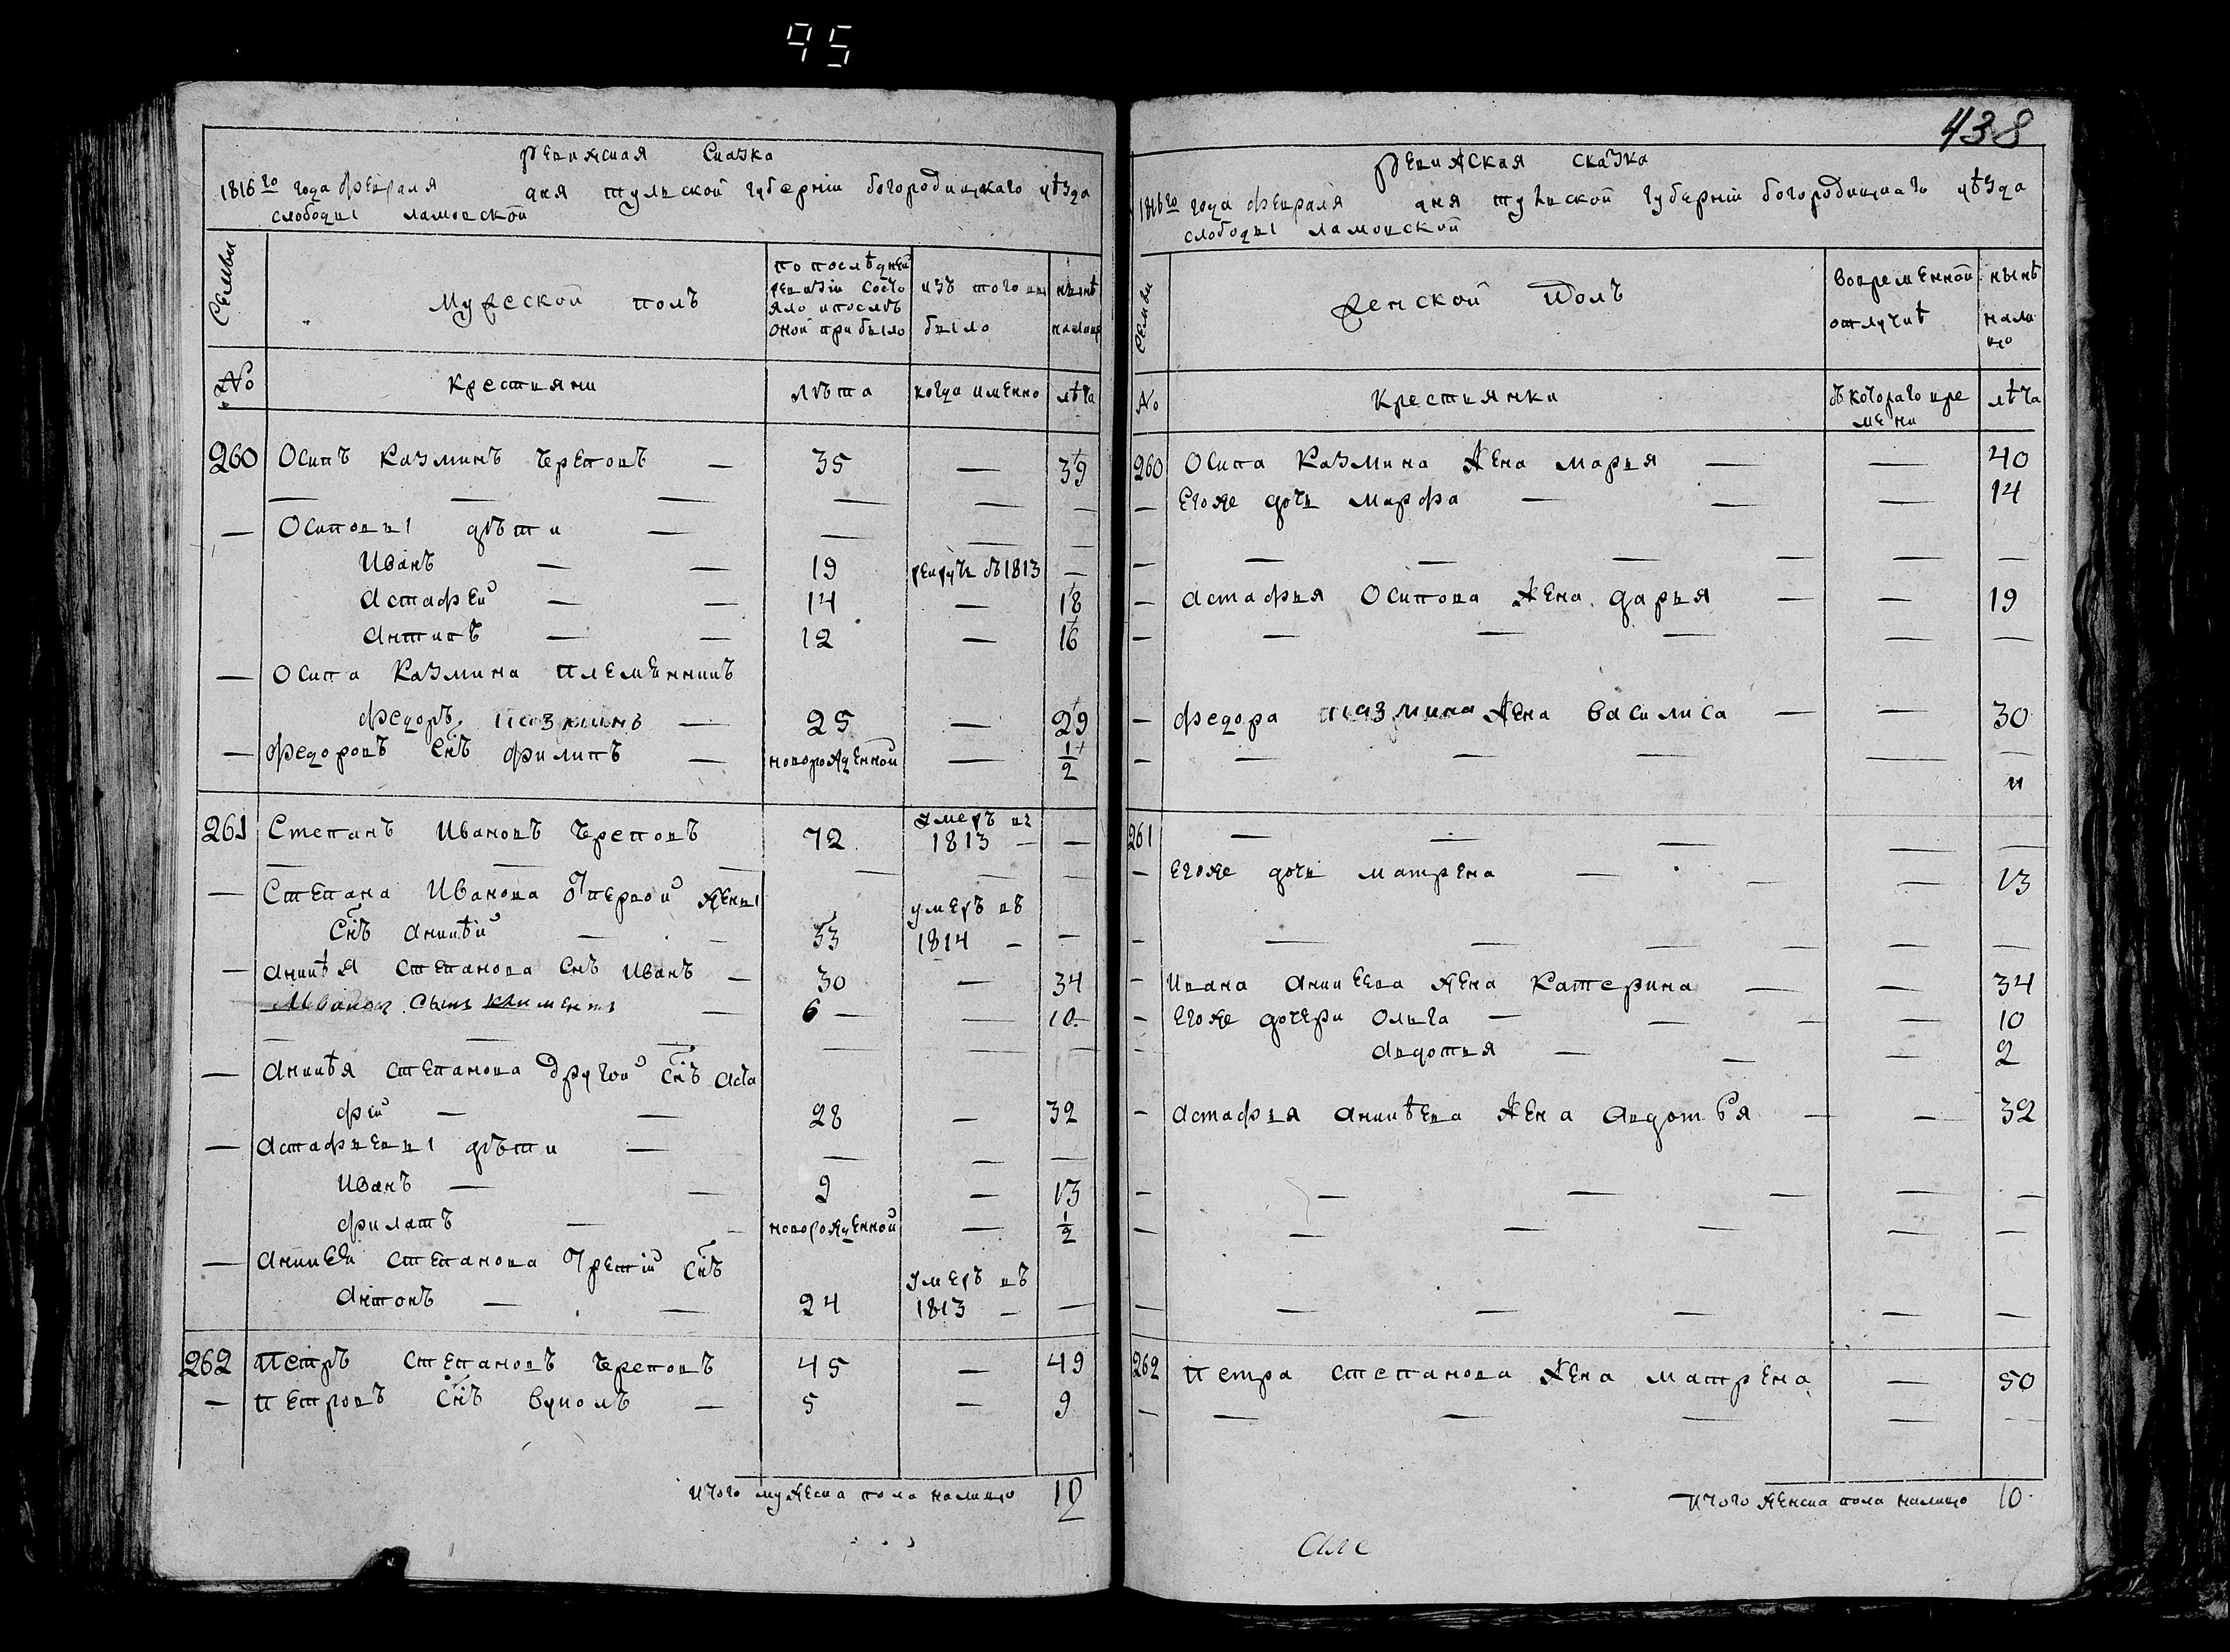 95
438
Ревижская Сказка
1816го года февраля дня тульской губернiи богородицкаго уѣзда
слободы ламовской
Семьи
Мужеской полъ
по послѣдней
ревизiи состо
яло и послѣ
оной прибыло
изъ того вы
было
нынѣ
налицо
№
крестьяни
лѣта
когда именно
лѣта
260 Осипъ Казминъ Череповъ — 35 — 39
— Осиповы дѣти —
Иванъ — — 19 рекрутъ въ 1813 —
Астафей — — 14 — 18
Антипъ — — 12 — 16
— Осипа Казмина племянникъ
Федоръ Казминъ — 25 — 29
— Федоровъ снъ Филипъ — новорожденной — 1/2
261 Степанъ Ивановъ Череповъ 72 умеръ въ
1813 — —
— Степана Иванова от первой жены
снъ Аникѣй — — 33 умеръ въ
1814 — —
— Аникѣя Степанова снъ Иванъ — 30 — 34
Ивановъ сынъ Климентъ — 6 — — 10
— Аникѣя Степанова другой снъ Аста
фiй — — 28 — 32
— Астафьевы дѣти —
Иванъ — — 9 — 13
Филатъ — — новорожденной — 1/2
— Аникѣи Степанова третiй снъ
Антонъ — — 24 умеръ въ
1813 — —
262 Петръ Степановъ Череповъ 45 — 49
— Петровъ снъ Вуколъ — 5 — 9
Итого мужеска пола налицо 12
Ревижская сказка
1816го года февраля дня тульской губернiи богородицкаго уѣзда
слободы ламовской
Семьи
Женской полъ
Вовременной
отлучкѣ
нынѣ
нали
цо
№
Крестьянки
съ котораго вре
мени
лѣта
260 Осипа Казмина жена Марья — — 40
— Егоже дочь Марфа — — — 14
— Астафья Осипова жена Дарья — — 19
— Федора Казмина жена Василиса — — 30
261
— Егоже дочь Матрена — — — 13
— Ивана Аникеева жена Катерина — — 34
— Егоже дочери Ольга — — — — 10
Авдотья — — — 2
— Астафья Аникѣева жена Авдотья — — 32
262 Петра Степанова жена Матрена — 50
Итого женска пола налицо 10